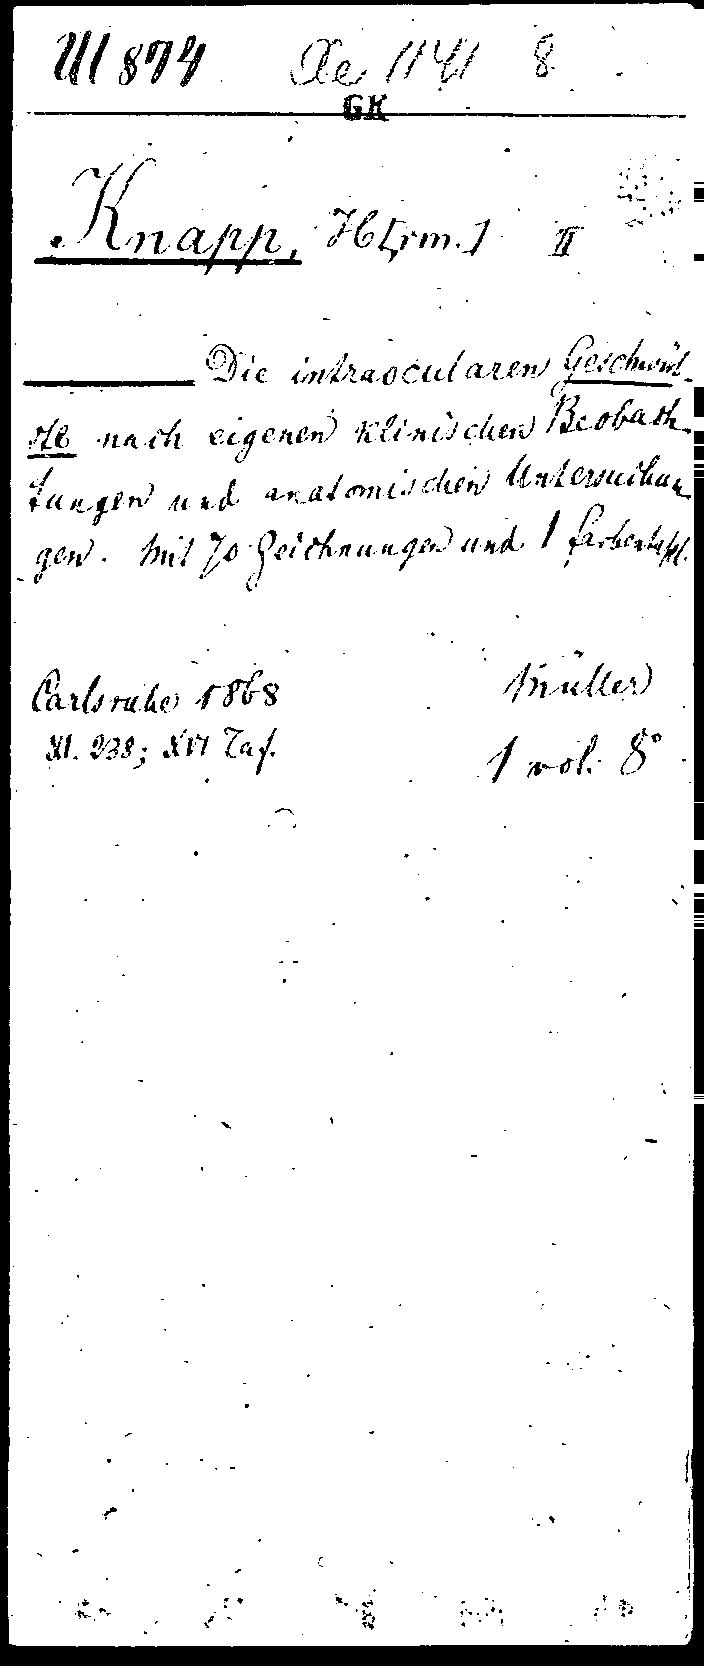 Ul 874 Xe 1141 8
GK
Knapp, H[rm.] II
Die intraocularen Geschwül-
ste nach eigenen klinischen Beobach-
tungen und anatomischen Untersuchun
gen. Mit 70 Zeichnungen und 1 Farbentafel.
Carlsruhe 1868 Müller
XI. 238; XVI Taf. 1 vol. 8°